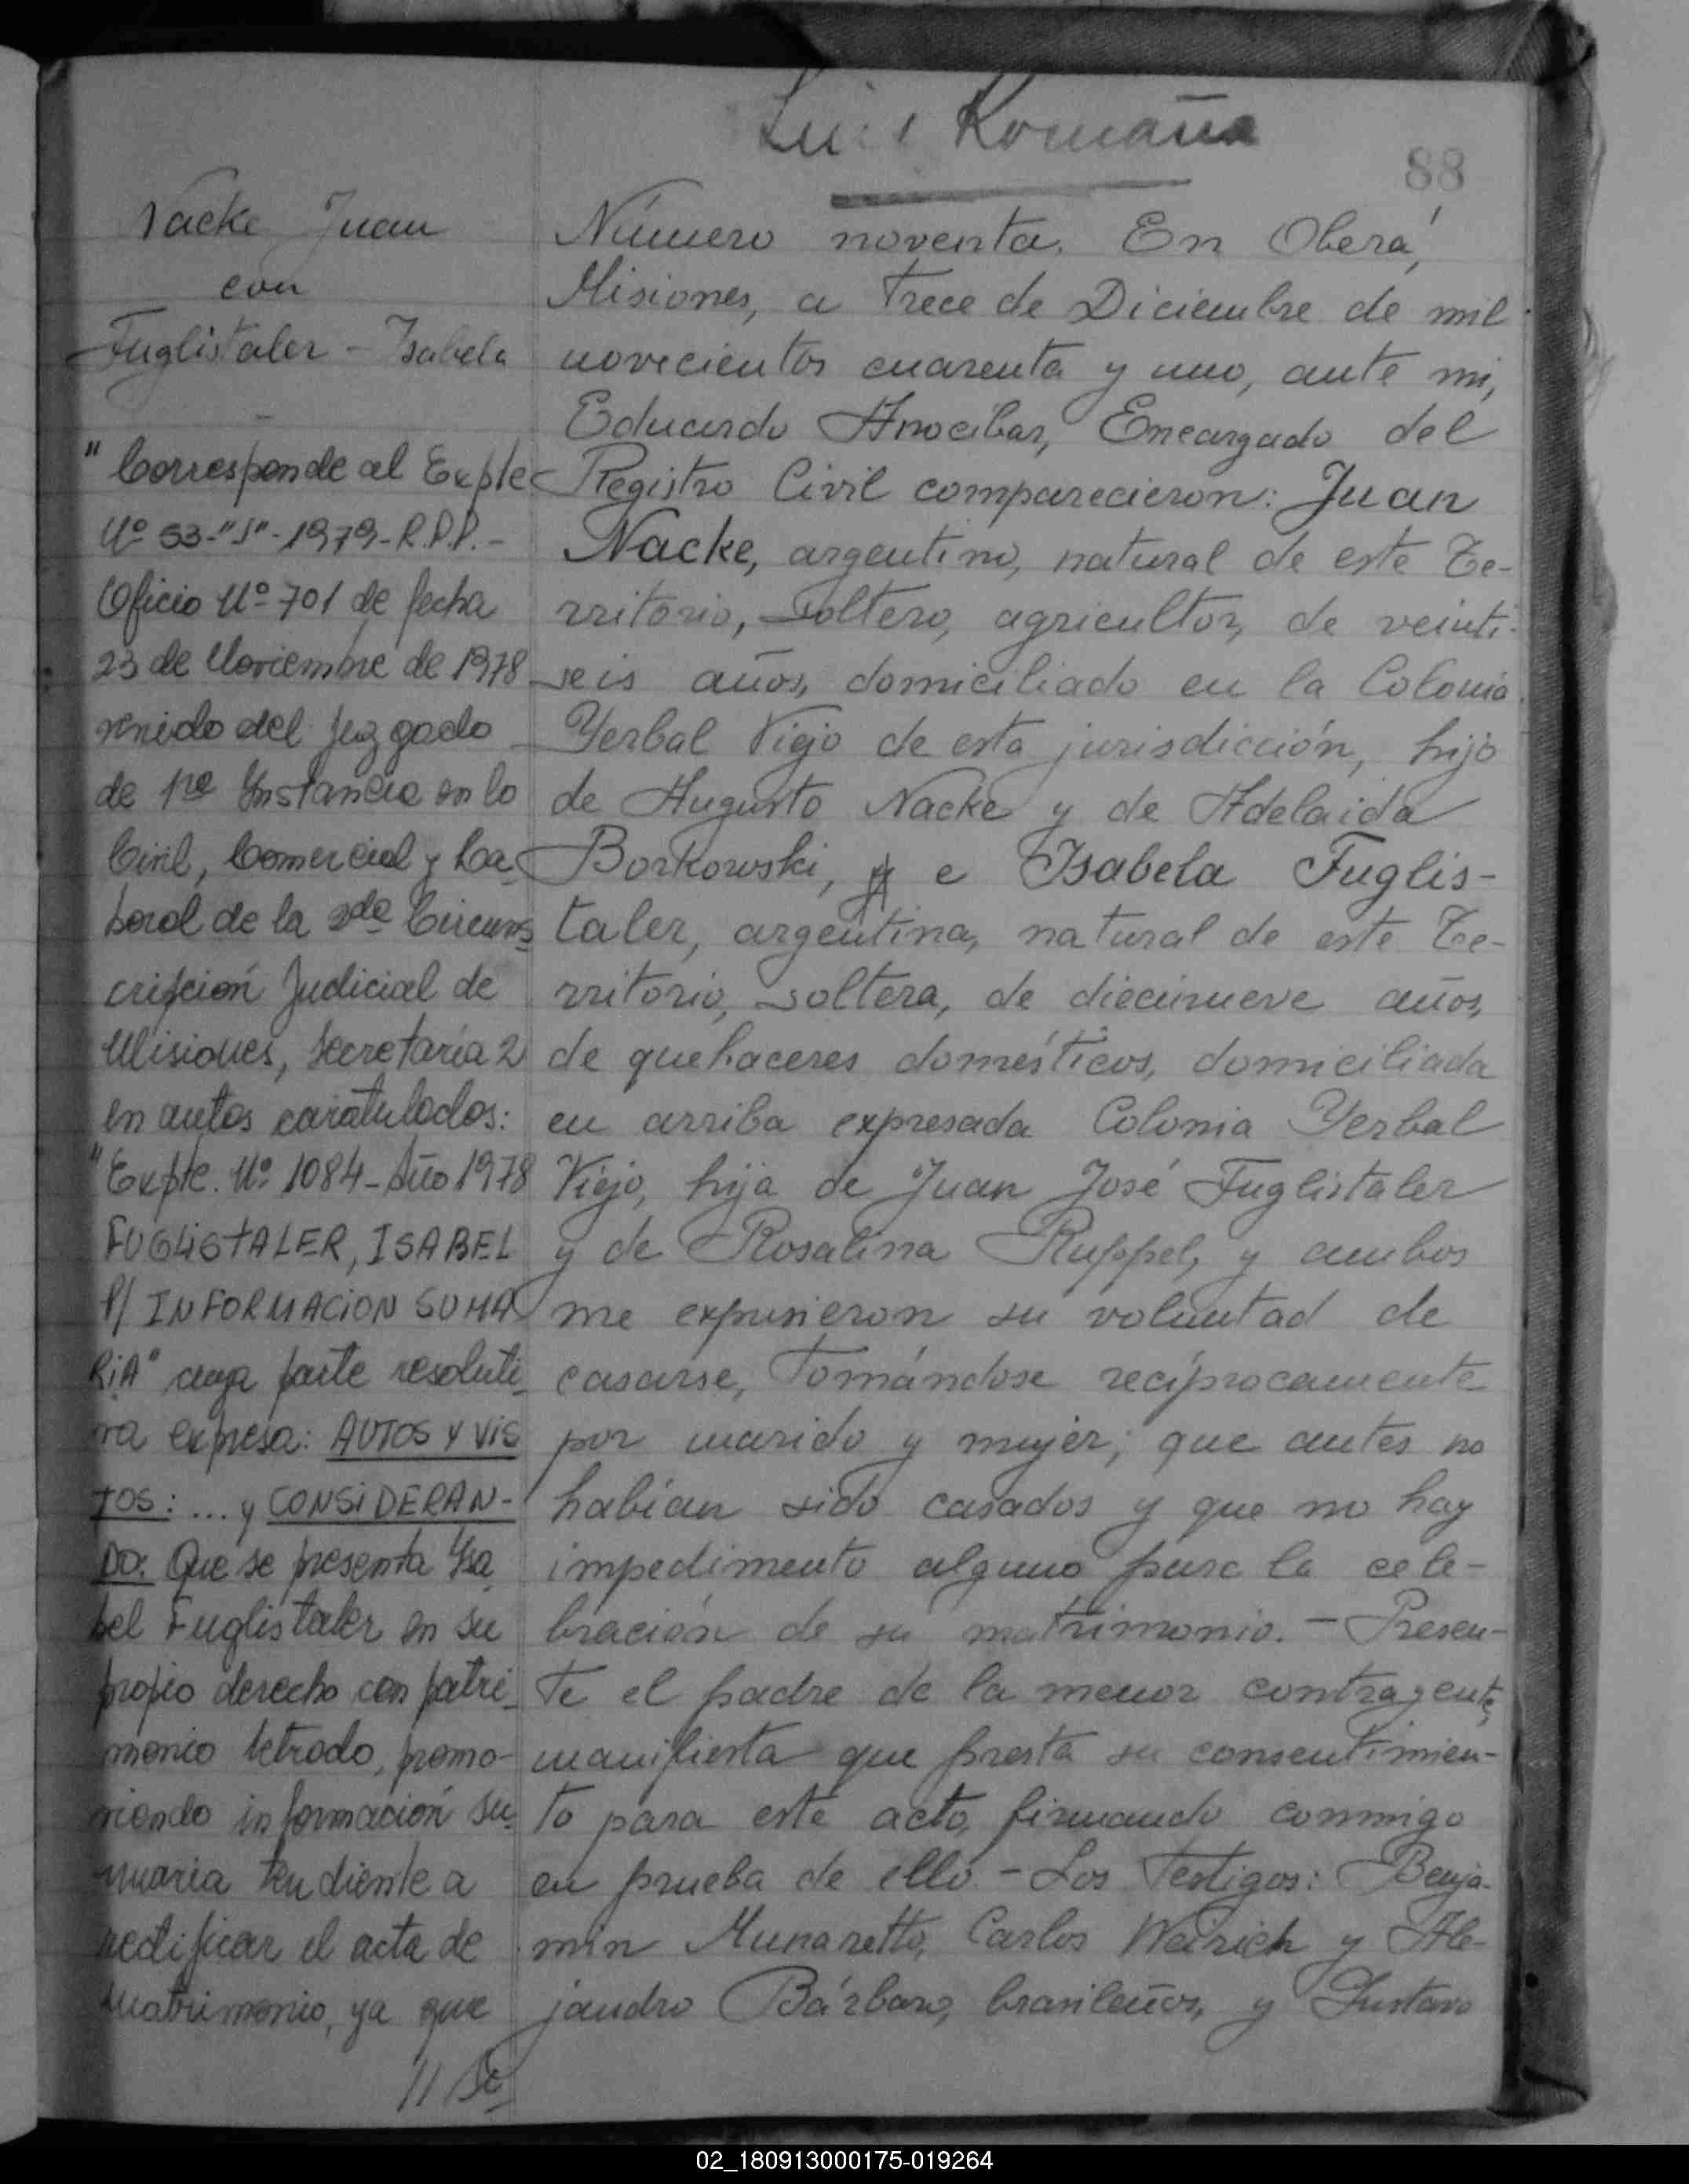 Luis Romaña
88
Nacke Juan
con
Fuglistaler - Isabela
"Corresponde al Expte
Nº 53-"J"-1979-R.P.P.-
Oficio Nº 701 de fecha
23 de Noviembre de 1978
venido del Juzgado
de 1ra Instancia en lo
Civil, Comercial y La-
boral de la 2da Circuns-
cripción Judicial de
Misiones, Secretaría 2
en autos caratulados:
"Expte. Nº 1084-Año 1978
FUGLISTALER, ISABEL
P/ INFORMACION SUMA
RIA" cuya parte resoluti-
va expresa: AUTOS Y VIS
TOS: ... y CONSIDERAN-
DO: Que se presenta Isa
bel Fuglistaler en su
propio derecho con patri-
monio letrado, promo-
viendo información su-
maria tendiente a
rectificar el acta de
matrimonio, ya que
Número noventa. En Oberá,
Misiones, a trece de Diciembre de mil
novecientos cuarenta y uno, ante mi,
Eduardo Anocíbar, Encargado del
Registro Civil comparecieron: Juan
Nacke, argentino, natural de este Te-
rritorio, soltero, agricultor, de veinti-
seis años, domiciliado en la Colonia
Yerbal Viejo de esta jurisdicción, hijo
de Augusto Nacke y de Adelaida
Borkowski, e Isabela Fuglis-
taler, argentina, natural de este Te-
rritorio, soltera, de diecinueve años,
de quehaceres domésticos, domiciliada
en arriba expresada Colonia Yerbal
Viejo, hija de Juan José Fuglistaler
y de Rosalina Ruppel, y ambos
me expusieron su voluntad de
casarse, tomándose recíprocamente
por marido y mujer; que antes no
habían sido casados y que no hay
impedimento alguno para la cele-
bración de su matrimonio. - Presen-
te el padre de la menor contrayente,
manifiesta que presta su consentimien-
to para este acto, firmando conmigo
en prueba de ello - Los Testigos: Benja-
min Munaretto, Carlos Weirich y Ale-
jandro Bárbaro, brasileños, y Gustavo
02_180913000175-019264